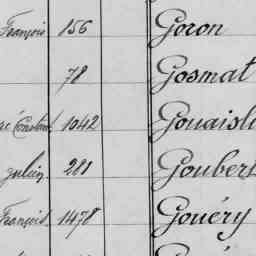 François 156 Goron
78 Gosmat
Constant 1042 Gouaisli
Julien 281 Goubert
François 1478 Gouéry